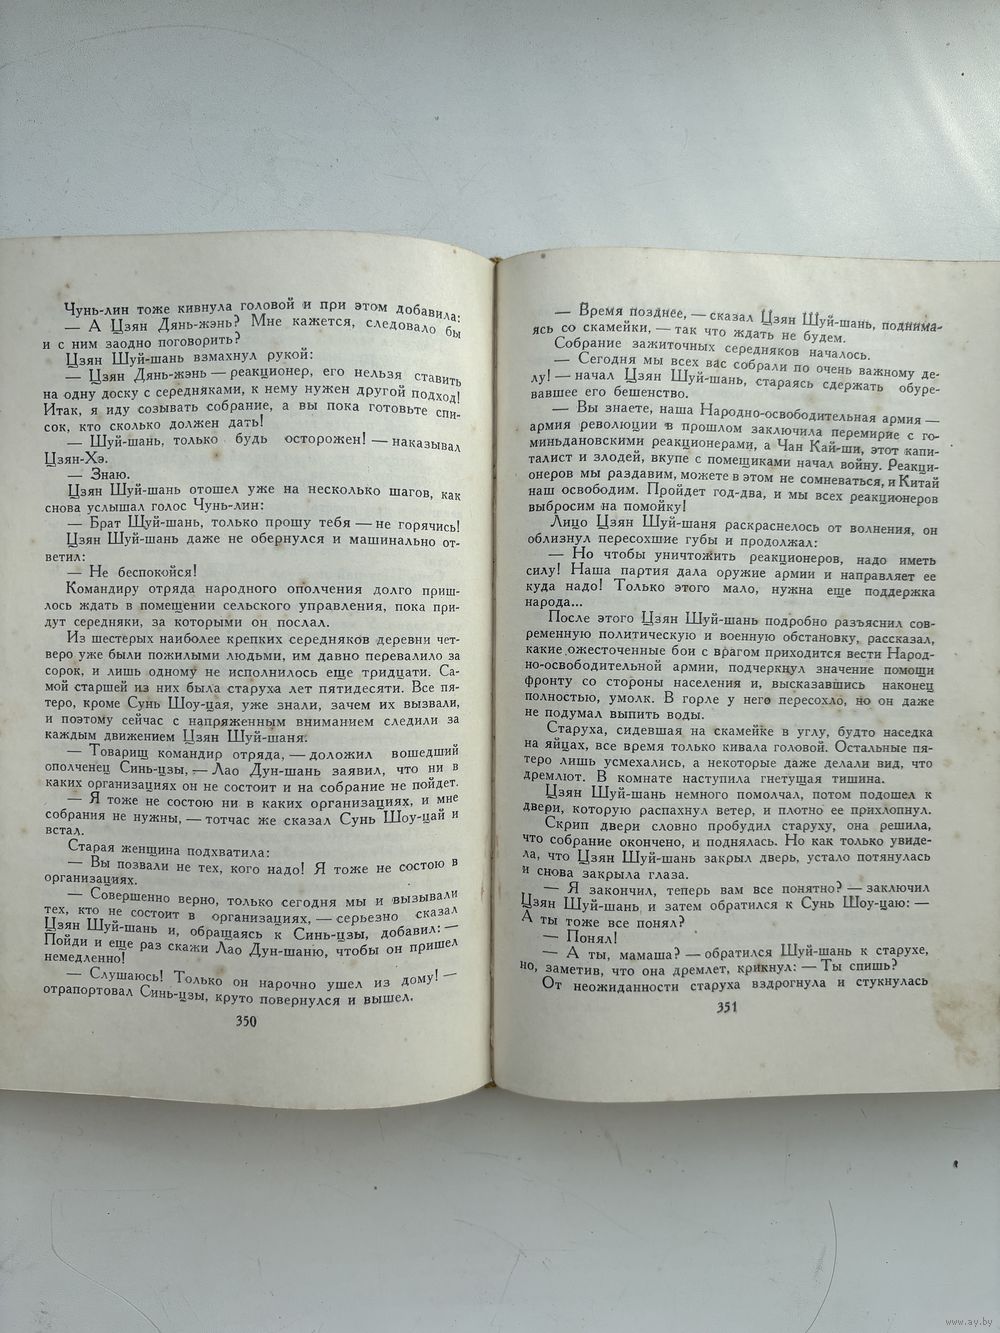 Чунь-лин тоже кивнула головой и при этом добавила:
— А Цзян Дянь-жэнь? Мне кажется, следовало бы
и с ним заодно поговорить?
Цзян Шуй-шань взмахнул рукой:
— Цзян Дянь-жэнь — реакционер, его нельзя ставить
на одну доску с середняками, к нему нужен другой подход!
Итак, я иду созывать собрание, а вы пока готовьте спи-
сок, кто сколько должен дать!
— Шуй-шань, только будь осторожен! — наказывал
Цзян-Хэ.
— Знаю.
Цзян Шуй-шань отошел уже на несколько шагов, как
снова услышал голос Чунь-лин:
— Брат Шуй-шань, только прошу тебя — не горячись!
Цзян Шуй-шань даже не обернулся и машинально от-
ветил:
— Не беспокойся!
Командиру отряда народного ополчения долго приш-
лось ждать в помещении сельского управления, пока при-
дут середняки, за которыми он послал.
Из шестерых наиболее крепких середняков деревни чет-
веро уже были пожилыми людьми, им давно перевалило за
сорок, и лишь одному не исполнилось еще тридцати. Са-
мой старшей из них была старуха лет пятидесяти. Все пя-
теро, кроме Сунь Шоу-цая, уже знали, зачем их вызвали,
и поэтому сейчас с напряженным вниманием следили за
каждым движением Цзян Шуй-шаня.
— Товарищ командир отряда, — доложил вошедший
ополченец Синь-цзы, — Лао Дун-шань заявил, что ни в
каких организациях он не состоит и на собрание не пойдет.
— Я тоже не состою ни в каких организациях, и мне
собрания не нужны, — тотчас же сказал Сунь Шоу-цай и
встал.
Старая женщина подхватила:
— Вы позвали не тех, кого надо! Я тоже не состою в
организациях.
— Совершенно верно, только сегодня мы и вызывали
тех, кто не состоит в организациях, — серьезно сказал
Цзян Шуй-шань и, обращаясь к Синь-цзы, добавил: —
Пойди и еще раз скажи Лао Дун-шаню, чтобы он пришел
немедленно!
— Слушаюсь! Только он нарочно ушел из дому! —
отрапортовал Синь-цзы, круто повернулся и вышел.
350
— Время позднее, — сказал Цзян Шуй-шань, поднима-
ясь со скамейки, — так что ждать не будем.
Собрание зажиточных середняков началось.
— Сегодня мы всех вас собрали по очень важному де-
лу! — начал Цзян Шуй-шань, стараясь сдержать обуре-
вавшее его бешенство.
— Вы знаете, наша Народно-освободительная армия —
армия революции в прошлом заключила перемирие с го-
миньдановскими реакционерами, а Чан Кай-ши, этот капи-
талист и злодей, вкупе с помещиками начал войну. Реакци-
онеров мы раздавим, можете в этом не сомневаться, и Китай
наш освободим. Пройдет год-два, и мы всех реакционеров
выбросим на помойку!
Лицо Цзян Шуй-шаня раскраснелось от волнения, он
облизнул пересохшие губы и продолжал:
— Но чтобы уничтожить реакционеров, надо иметь
силу! Наша партия дала оружие армии и направляет ее
куда надо! Только этого мало, нужна еще поддержка
народа...
После этого Цзян Шуй-шань подробно разъяснил сов-
ременную политическую и военную обстановку, рассказал,
какие ожесточенные бои с врагом приходится вести Народ-
но-освободительной армии, подчеркнул значение помощи
фронту со стороны населения и, высказавшись наконец
полностью, умолк. В горле у него пересохло, но он даже
не подумал выпить воды.
Старуха, сидевшая на скамейке в углу, будто наседка
на яйцах, все время только кивала головой. Остальные пя-
теро лишь усмехались, а некоторые даже делали вид, что
дремлют. В комнате наступила гнетущая тишина.
Цзян Шуй-шань немного помолчал, потом подошел к
двери, которую распахнул ветер, и плотно ее прихлопнул.
Скрип двери словно пробудил старуху, она решила,
что собрание окончено, и поднялась. Но как только увиде-
ла, что Цзян Шуй-шань закрыл дверь, устало потянулась
и снова закрыла глаза.
— Я закончил, теперь вам все понятно? — заключил
Цзян Шуй-шань и затем обратился к Сунь Шоу-цаю: —
А ты тоже все понял?
— Понял!
— А ты, мамаша? — обратился Шуй-шань к старухе,
но, заметив, что она дремлет, крикнул: — Ты спишь?
От неожиданности старуха вздрогнула и стукнулась
351
www.ay.by